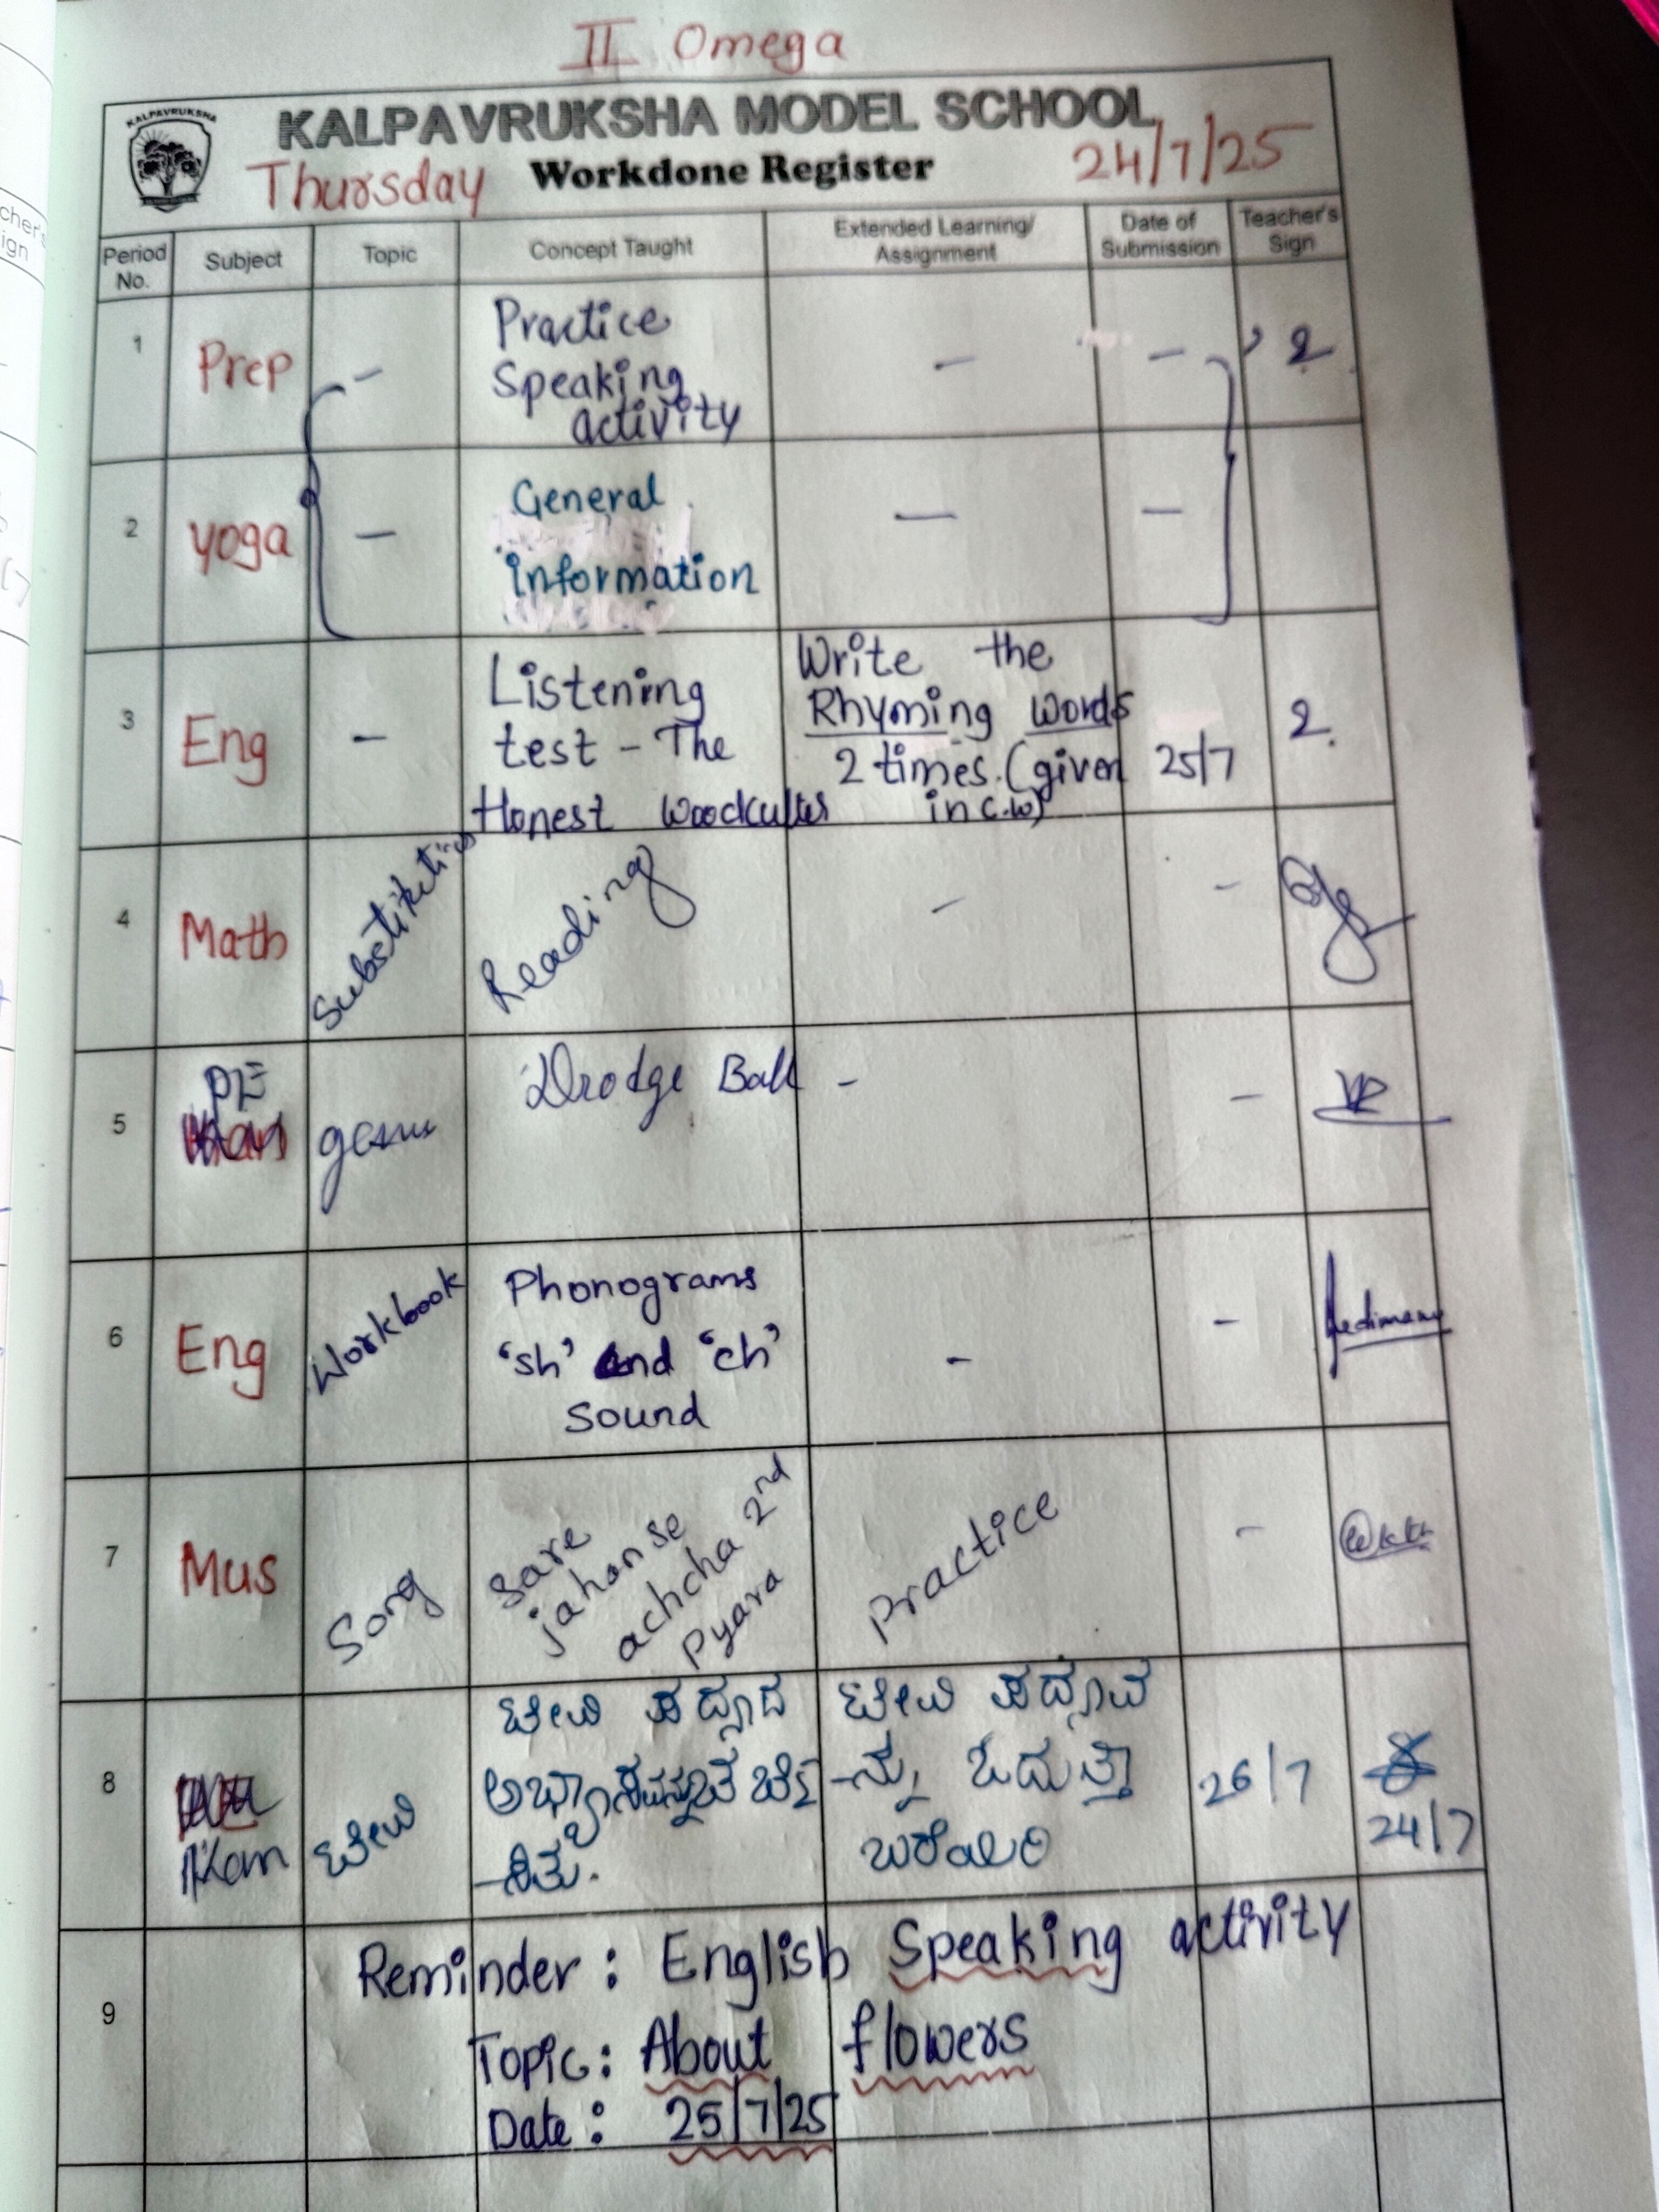 II Omega
KALPAVRUKSHA
KALPAVRUKSHA MODEL SCHOOL
Thursday Workdone Register 24/7/25
Period No. Subject Topic Concept Taught Extended Learning/ Assignment Date of Submission Teacher's Sign
1 Prep - Practice - -
Speaking
activity
2 yoga - General - -
information
3 Eng - Listening Write the
test - The Rhyming words
Honest Woodcutter 2 times. (given 25/7
in c.w)
4 Math Substitution Reading - -
PE
5 game Drodge Ball - -
6 Eng Workbook Phonograms - -
'sh' and 'ch'
Sound
7 Mus Song Sare Practice -
jahan se
achcha 2nd
Pyara
8 Kan 26/7
24/7
9 Reminder : English Speaking activity
Topic : About flowers
Date : 25/7/25